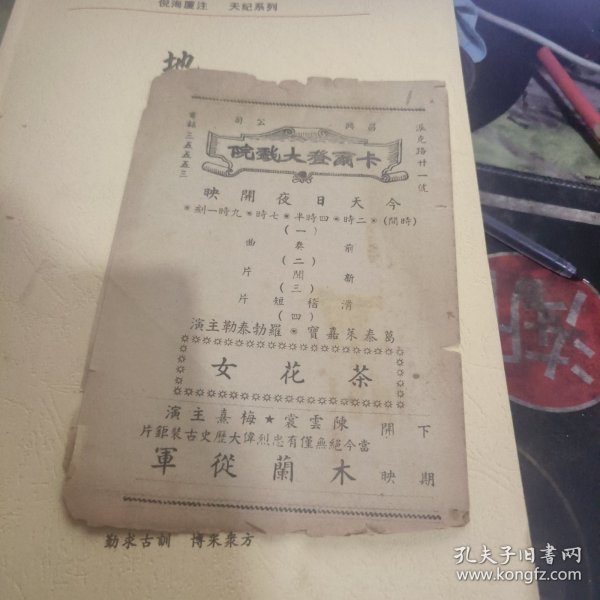 倪海厦注 天紀系列
地
派克路廿一號
昌興公司
電話三五五五三
卡爾登大戲院
今天日夜開映
(時間)二時＊四時半＊七時＊九時一刻＊
(一)
前奏曲
(二)
新聞片
(三)
滑稽短片
(四)
葛泰萊嘉寶＊羅勃泰勒主演
茶花女
下期開映
陳雲裳★梅熹主演
當今絕無僅有忠烈偉大歷史古裝鉅片
木蘭從軍
勤求古訓 博采衆方
孔夫子旧書网
www.kongfz.com